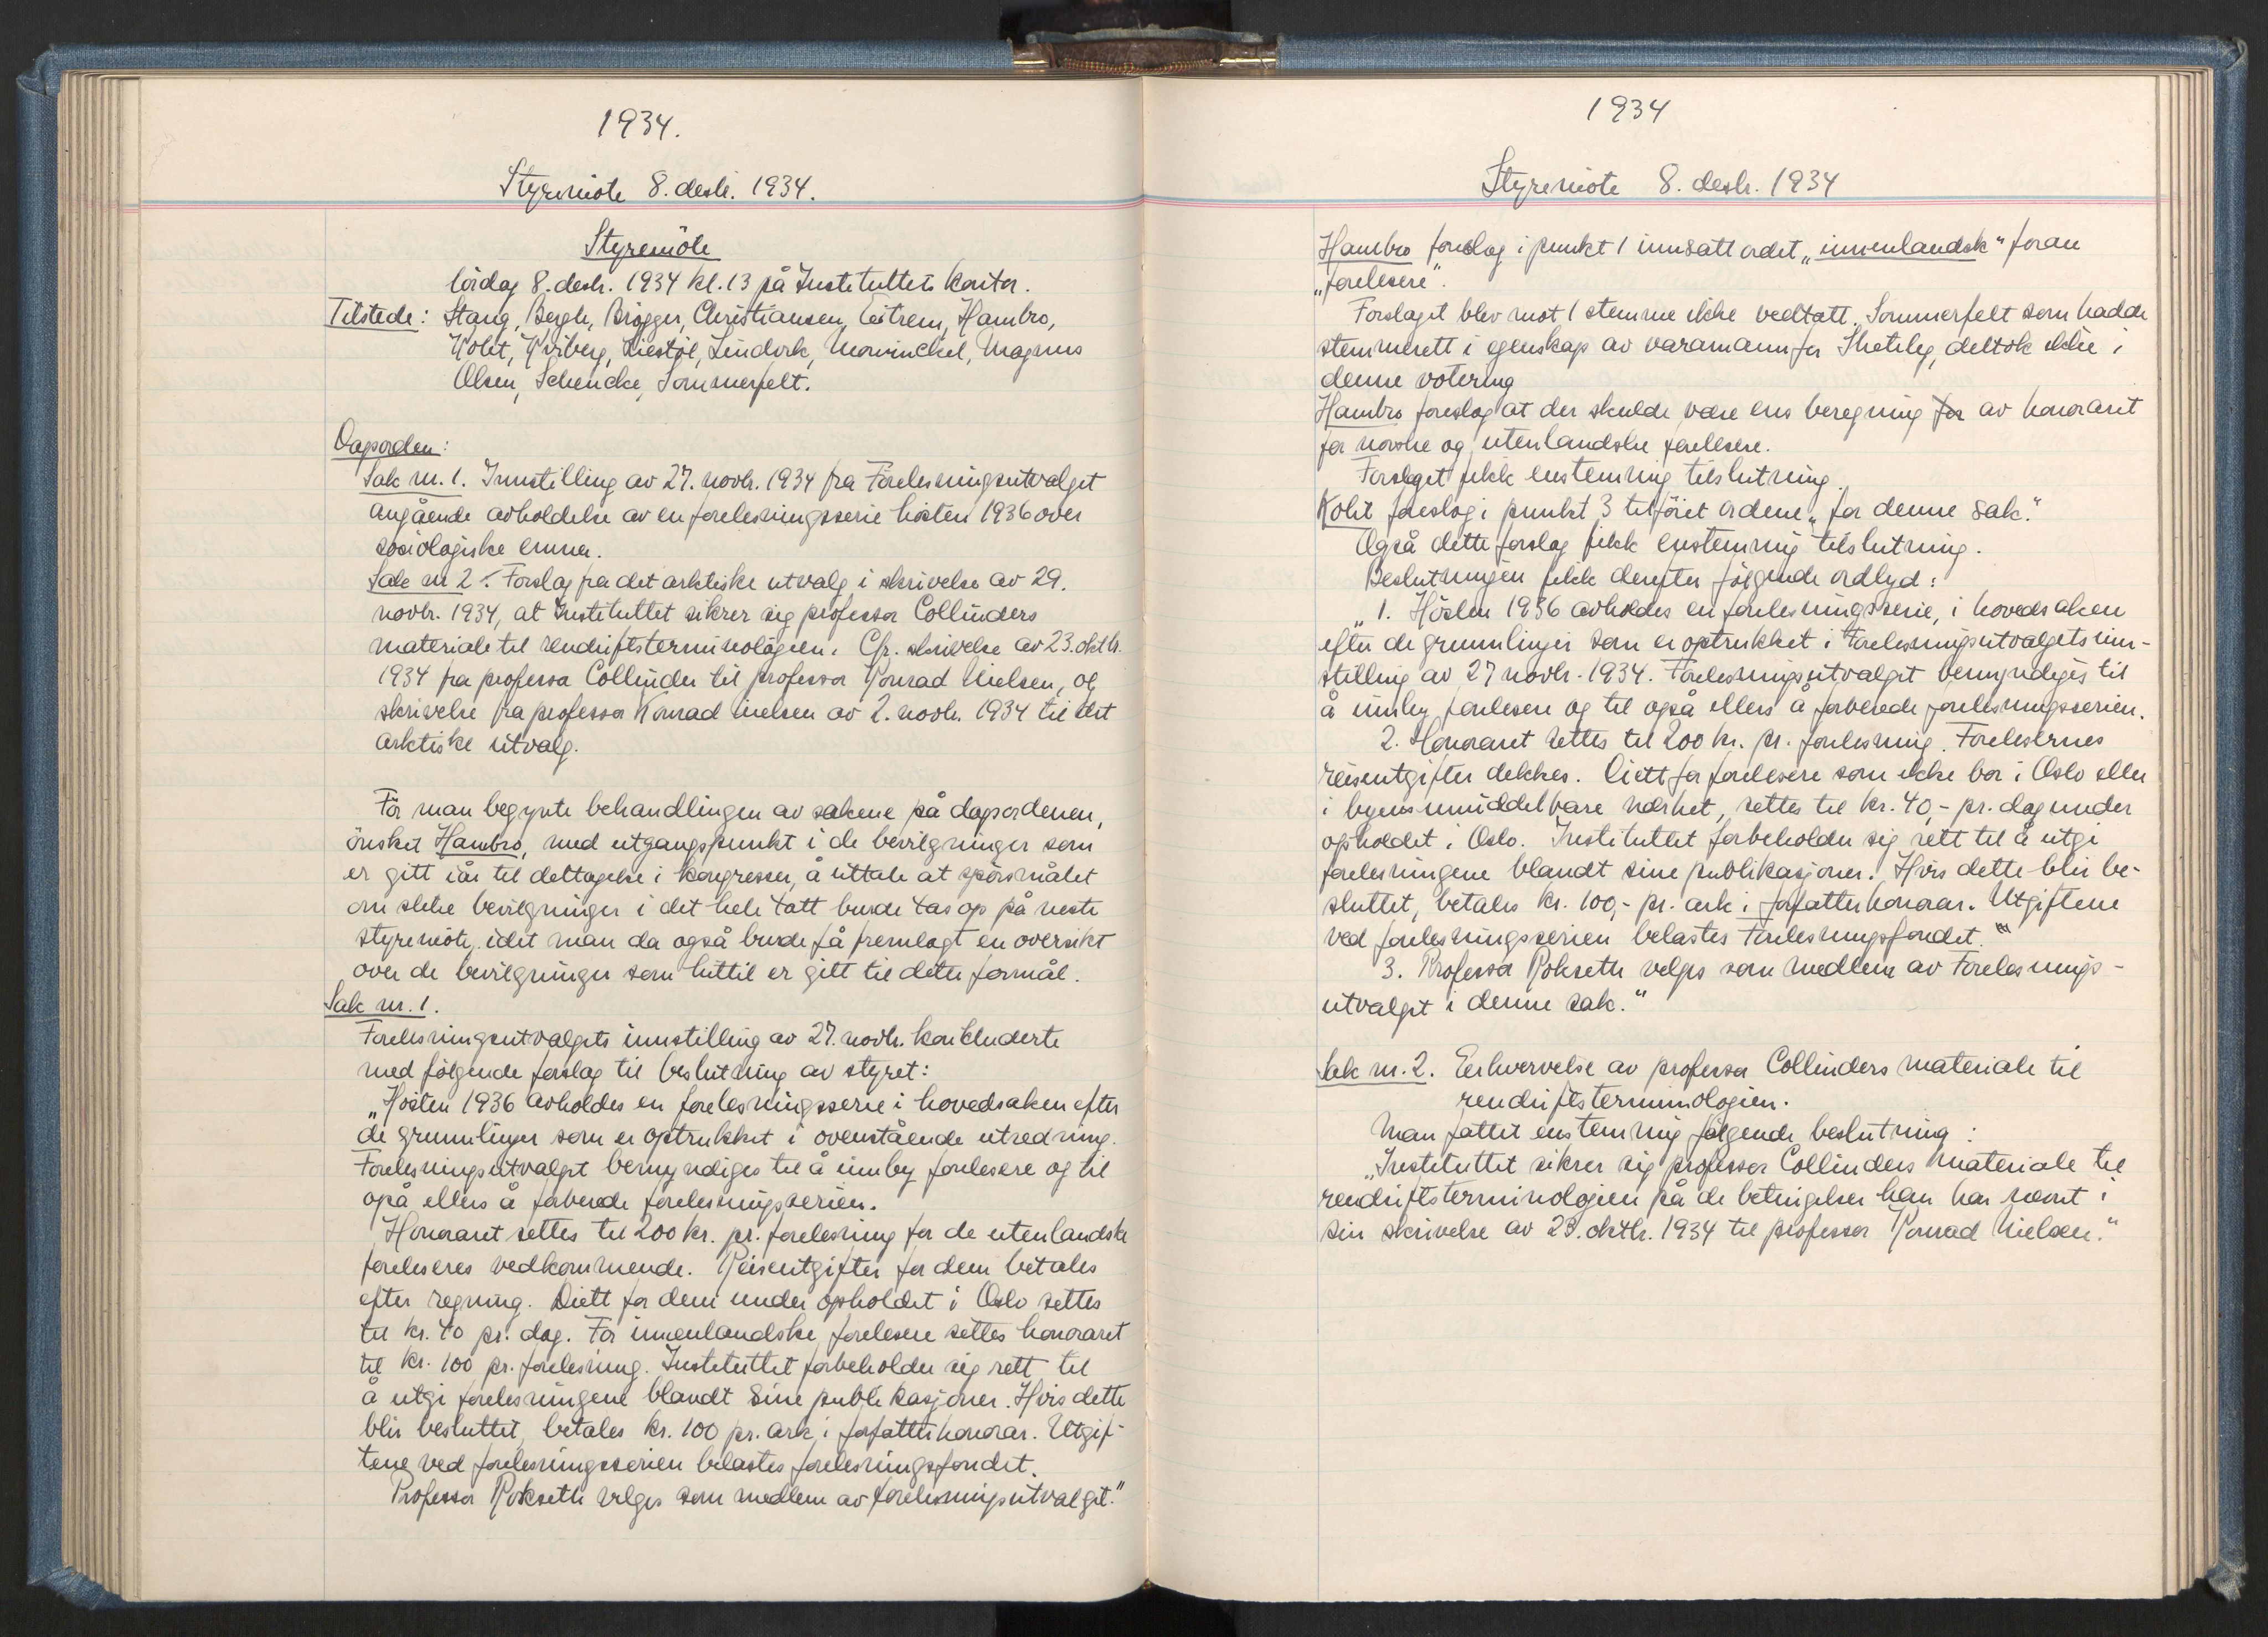 1934.
Styremöte 8. desbr. 1934.
Styremöte
lördag 8. desbr. 1934 kl. 13 på Instituttets kontor.
Tilstede: Stang, Bergh, Brøgger, Christiansen, Eitrem, Hambro,
Koht, Kviberg, Liestøl, Lindvik, Mowinckel, Magnus
Olsen, Schencke, Sommerfelt.
Dagsorden:
Sak nr. 1. Innstilling av 27. novbr. 1934 fra Forelesningsutvalget
angående avholdelse av en forelesningsserie hösten 1936 over
sosiologiske emner.
Sak nr 2. Forslag fra det arktiske utvalg i skrivelse av 29.
novbr. 1934, at Instituttet sikrer sig professor Collinders
materiale til rendriftsterminologien. Cfr. skrivelse av 23. oktbr.
1934 fra professor Collinder til professor Konrad Nielsen, og
skrivelse fra professor Konrad Nielsen av 2. novbr. 1934 til det
arktiske utvalg.
För man begynte behandlingen av sakene på dagsordenen,
önsket Hambro, med utgangspunkt i de bevilgninger som
er gitt iår til deltagelse i kongresser, å uttale at spörsmålet
om slike bevilgninger i det hele tatt burde tas op på neste
styremöte, idet man da også burde få fremlagt en oversikt
over de bevilgninger som hittil er gitt til dette formål.
Sak nr. 1.
Forelesningsutvalgets innstilling av 27. novbr. konkluderte
med fölgende forslag til beslutning av styret:
„Hösten 1936 avholdes en forelesningsserie i hovedsaken efter
de grunnlinjer som er optrukket i ovenstående utredning.
Forelesningsutvalget bemyndiges til å innby forelesere og til
også ellers å forberede forelesningsserien.
Honoraret settes til 200 kr. pr. forelesning for de utenlandske
foreleseres vedkommende. Reiseutgifter for dem betales
efter regning. Diett for dem under opholdet i Oslo settes
til kr. 40 pr. dag. For innenlandske forelesere settes honoraret
til kr. 100 pr. forelesning. Instituttet forbeholder sig rett til
å utgi forelesningene blandt sine publikasjoner. Hvis dette
blir besluttet, betales kr. 100 pr. ark i forfatterhonorar. Utgif-
tene ved forelesningsserien belastes forelesningsfondet.
Professor Rokseth velges som medlem av forelesningsutvalget.“
1934
Styremöte 8. desbr. 1934
Hambro foreslog i punkt 1 innsatt ordet „innenlandsk“ foran
„forelesere“.
Forslaget blev mot 1 stemme ikke vedtatt. Sommerfelt som hadde
stemmerett i egenskap av varamann for Shetelig, deltok ikke i
denne votering
Hambro foreslog at der skulde være ens beregning for av honoraret
for norske og utenlandske forelesere.
Forslaget fikk enstemmig tilslutning.
Koht foreslog i punkt 3 tilföiet ordene „for denne sak.“
Også dette forslag fikk enstemmig tilslutning.
Beslutningen fikk derefter fölgende ordlyd:
„1. Hösten 1936 avholdes en forelesningsserie, i hovedsaken
efter de grunnlinjer som er optrukket i Forelesningsutvalgets inn-
stilling av 27 novbr. 1934. Forelesningsutvalget bemyndiges til
å innby forelesere og til også ellers å forberede forelesningsserien.
2. Honoraret settes til 200 kr. pr. forelesning. Forelesernes
reiseutgifter dekkes. Diett for forelesere som ikke bor i Oslo eller
i byens umiddelbare nærhet, settes til kr. 40,- pr. dag under
opholdet i Oslo. Instituttet forbeholder sig rett til å utgi
forelesningene blandt sine publikasjoner. Hvis dette blir be-
sluttet, betales kr. 100,- pr. ark i forfatterhonorar. Utgiftene
ved forelesningsserien belastes Forelesningsfondet.“
3. Professor Rokseth velges som medlem av Forelesnings-
utvalget i denne sak.“
Sak nr. 2. Erhvervelse av professor Collinders materiale til
rendriftsterminologien.
Man fattet enstemmig fölgende beslutning:
„Instituttet sikrer sig professor Collinders materiale til
rendriftsterminologien på de betingelser han har nevnt i
sin skrivelse av 23. oktbr. 1934 til professor Konrad Nielsen.“